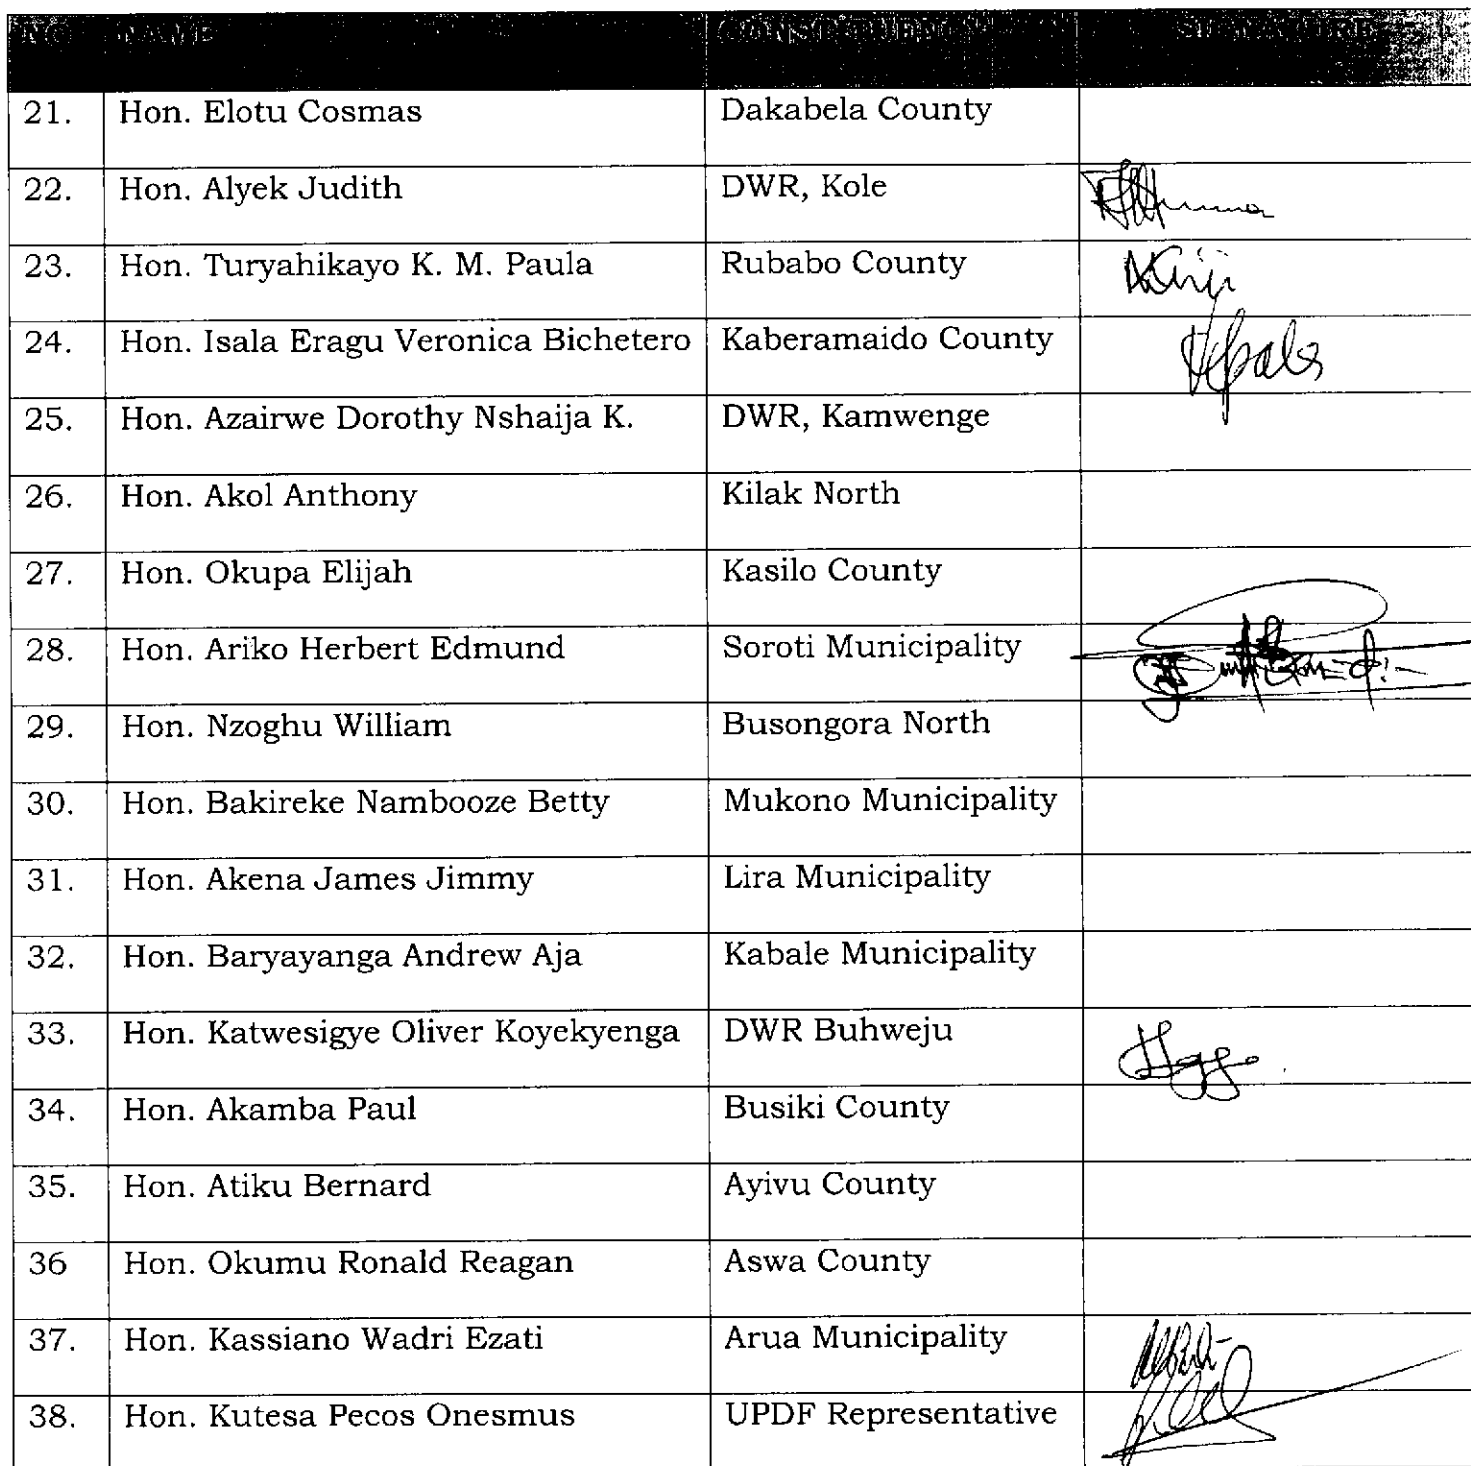 NO NAME CONSTITUENCY SIGNATURE
21. Hon. Elotu Cosmas Dakabela County
22. Hon. Alyek Judith DWR, Kole
23. Hon. Turyahikayo K. M. Paula Rubabo County
24. Hon. Isala Eragu Veronica Bichetero Kaberamaido County
25. Hon. Azairwe Dorothy Nshaija K. DWR, Kamwenge
26. Hon. Akol Anthony Kilak North
27. Hon. Okupa Elijah Kasilo County
28. Hon. Ariko Herbert Edmund Soroti Municipality
29. Hon. Nzoghu William Busongora North
30. Hon. Bakireke Nambooze Betty Mukono Municipality
31. Hon. Akena James Jimmy Lira Municipality
32. Hon. Baryayanga Andrew Aja Kabale Municipality
33. Hon. Katwesigye Oliver Koyekyenga DWR Buhweju
34. Hon. Akamba Paul Busiki County
35. Hon. Atiku Bernard Ayivu County
36 Hon. Okumu Ronald Reagan Aswa County
37. Hon. Kassiano Wadri Ezati Arua Municipality
38. Hon. Kutesa Pecos Onesmus UPDF Representative